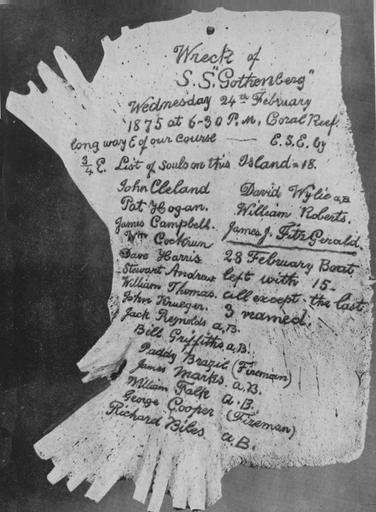 Wreck of
S.S. "Gothenberg"
Wednesday 24th February
1875 at 6-30 P.M, Coral Reef
long way E of our course — E.S.E. by
3/4 E. List of souls on this Island = 18.
John Cleland
Pat Hogan.
James Campbell.
Wm Cockrun
Dave Harris
Stewart Andrew
William Thomas.
John Krueger.
Jack Reynolds a,B.
Bill Griffiths a,B.
Paddy Brazil (Firemen)
James Marks. a,B.
William Falk a.B.
George Cooper (Fireman)
Richard Biles a,B.
David Wylie a,B
William Roberts.
James J. FitzGerald.
28 February Boat
left with 15.
all except the last
3 named.